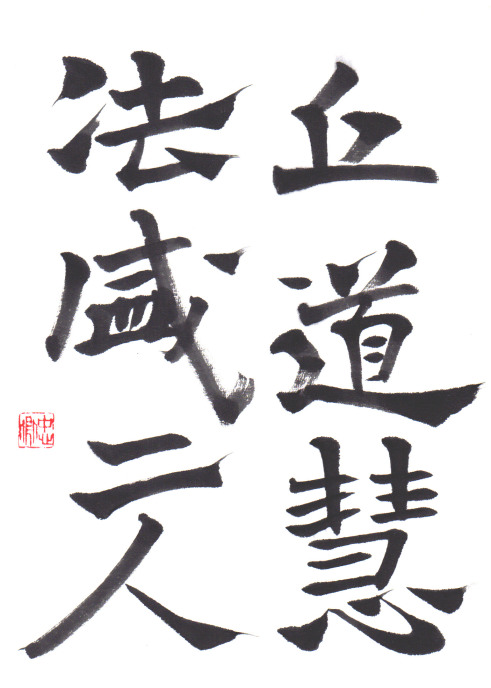 丘道慧
法盛二人